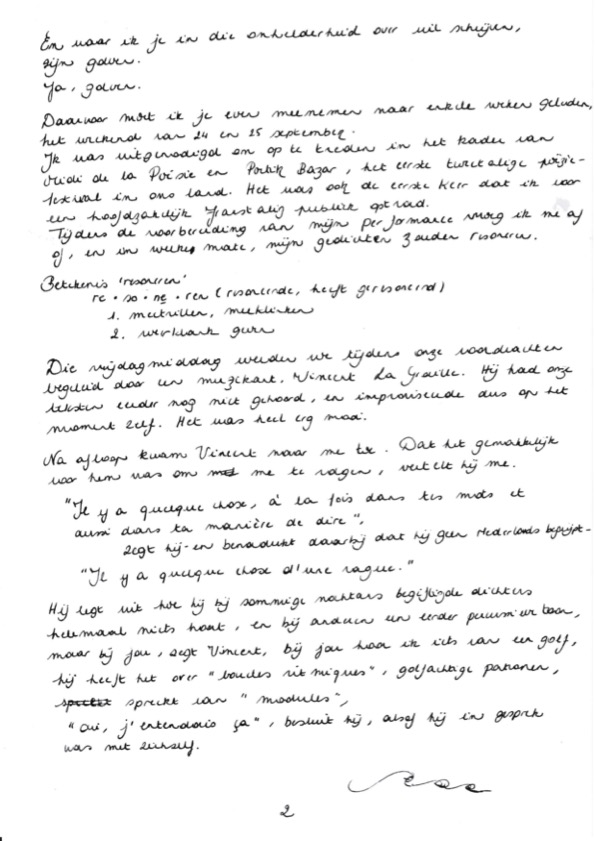 En waar ik je in die onhelderheid over wil schrijven,
zijn golven.
Ja, golven.
Daarvoor moet ik je even meenemen naar enkele weken geleden,
het weekend van 24 en 25 september.
Ik was uitgenodigd om op te treden in het kader van
de la Poésie en Poetik Bazar, het eerste tweetalige poëzie-
festival in ons land. Het was ook de eerste keer dat ik voor
een hoofdzakelijk Franstalig publiek optrad.
Tijdens de voorbereiding van mijn performance vroeg ik me af
of, en in welke mate, mijn gedichten zouden resoneren.
Betekenis 'resoneren'
re · so · ne · ren (resoneerde, heeft geresoneerd)
1. meetrillen, meeklinken
2. weerklank geven
Die vrijdagmiddag werden we tijdens onze voordrachten
begeleid door een muzikant, Vincent La . Hij had onze
teksten eerder nog niet gehoord, en improviseerde dus op het
moment zelf. Het was heel erg mooi.
Na afloop kwam Vincent naar me toe. Dat het gemakkelijk
voor hem was om me te volgen, vertelt hij me.
"Il y a quelque chose, à la fois dans tes mots et
aussi dans ta manière de dire",
zegt hij - en benadrukt daarbij dat hij geen Nederlands begrijpt -
"Il y a quelque chose d'une vague."
Hij legt uit hoe hij bij sommige nochtans begiftigde dichters
helemaal niets hoort, en bij anderen een eerder percussieve toon,
maar bij jou, zegt Vincent, bij jou hoor ik iets van een golf,
hij heeft het over "boucles ritmiques", golfachtige patronen,
spreekt van "modules",
"oui, j'entendais ça", besluit hij, alsof hij in gesprek
was met zichzelf.
2